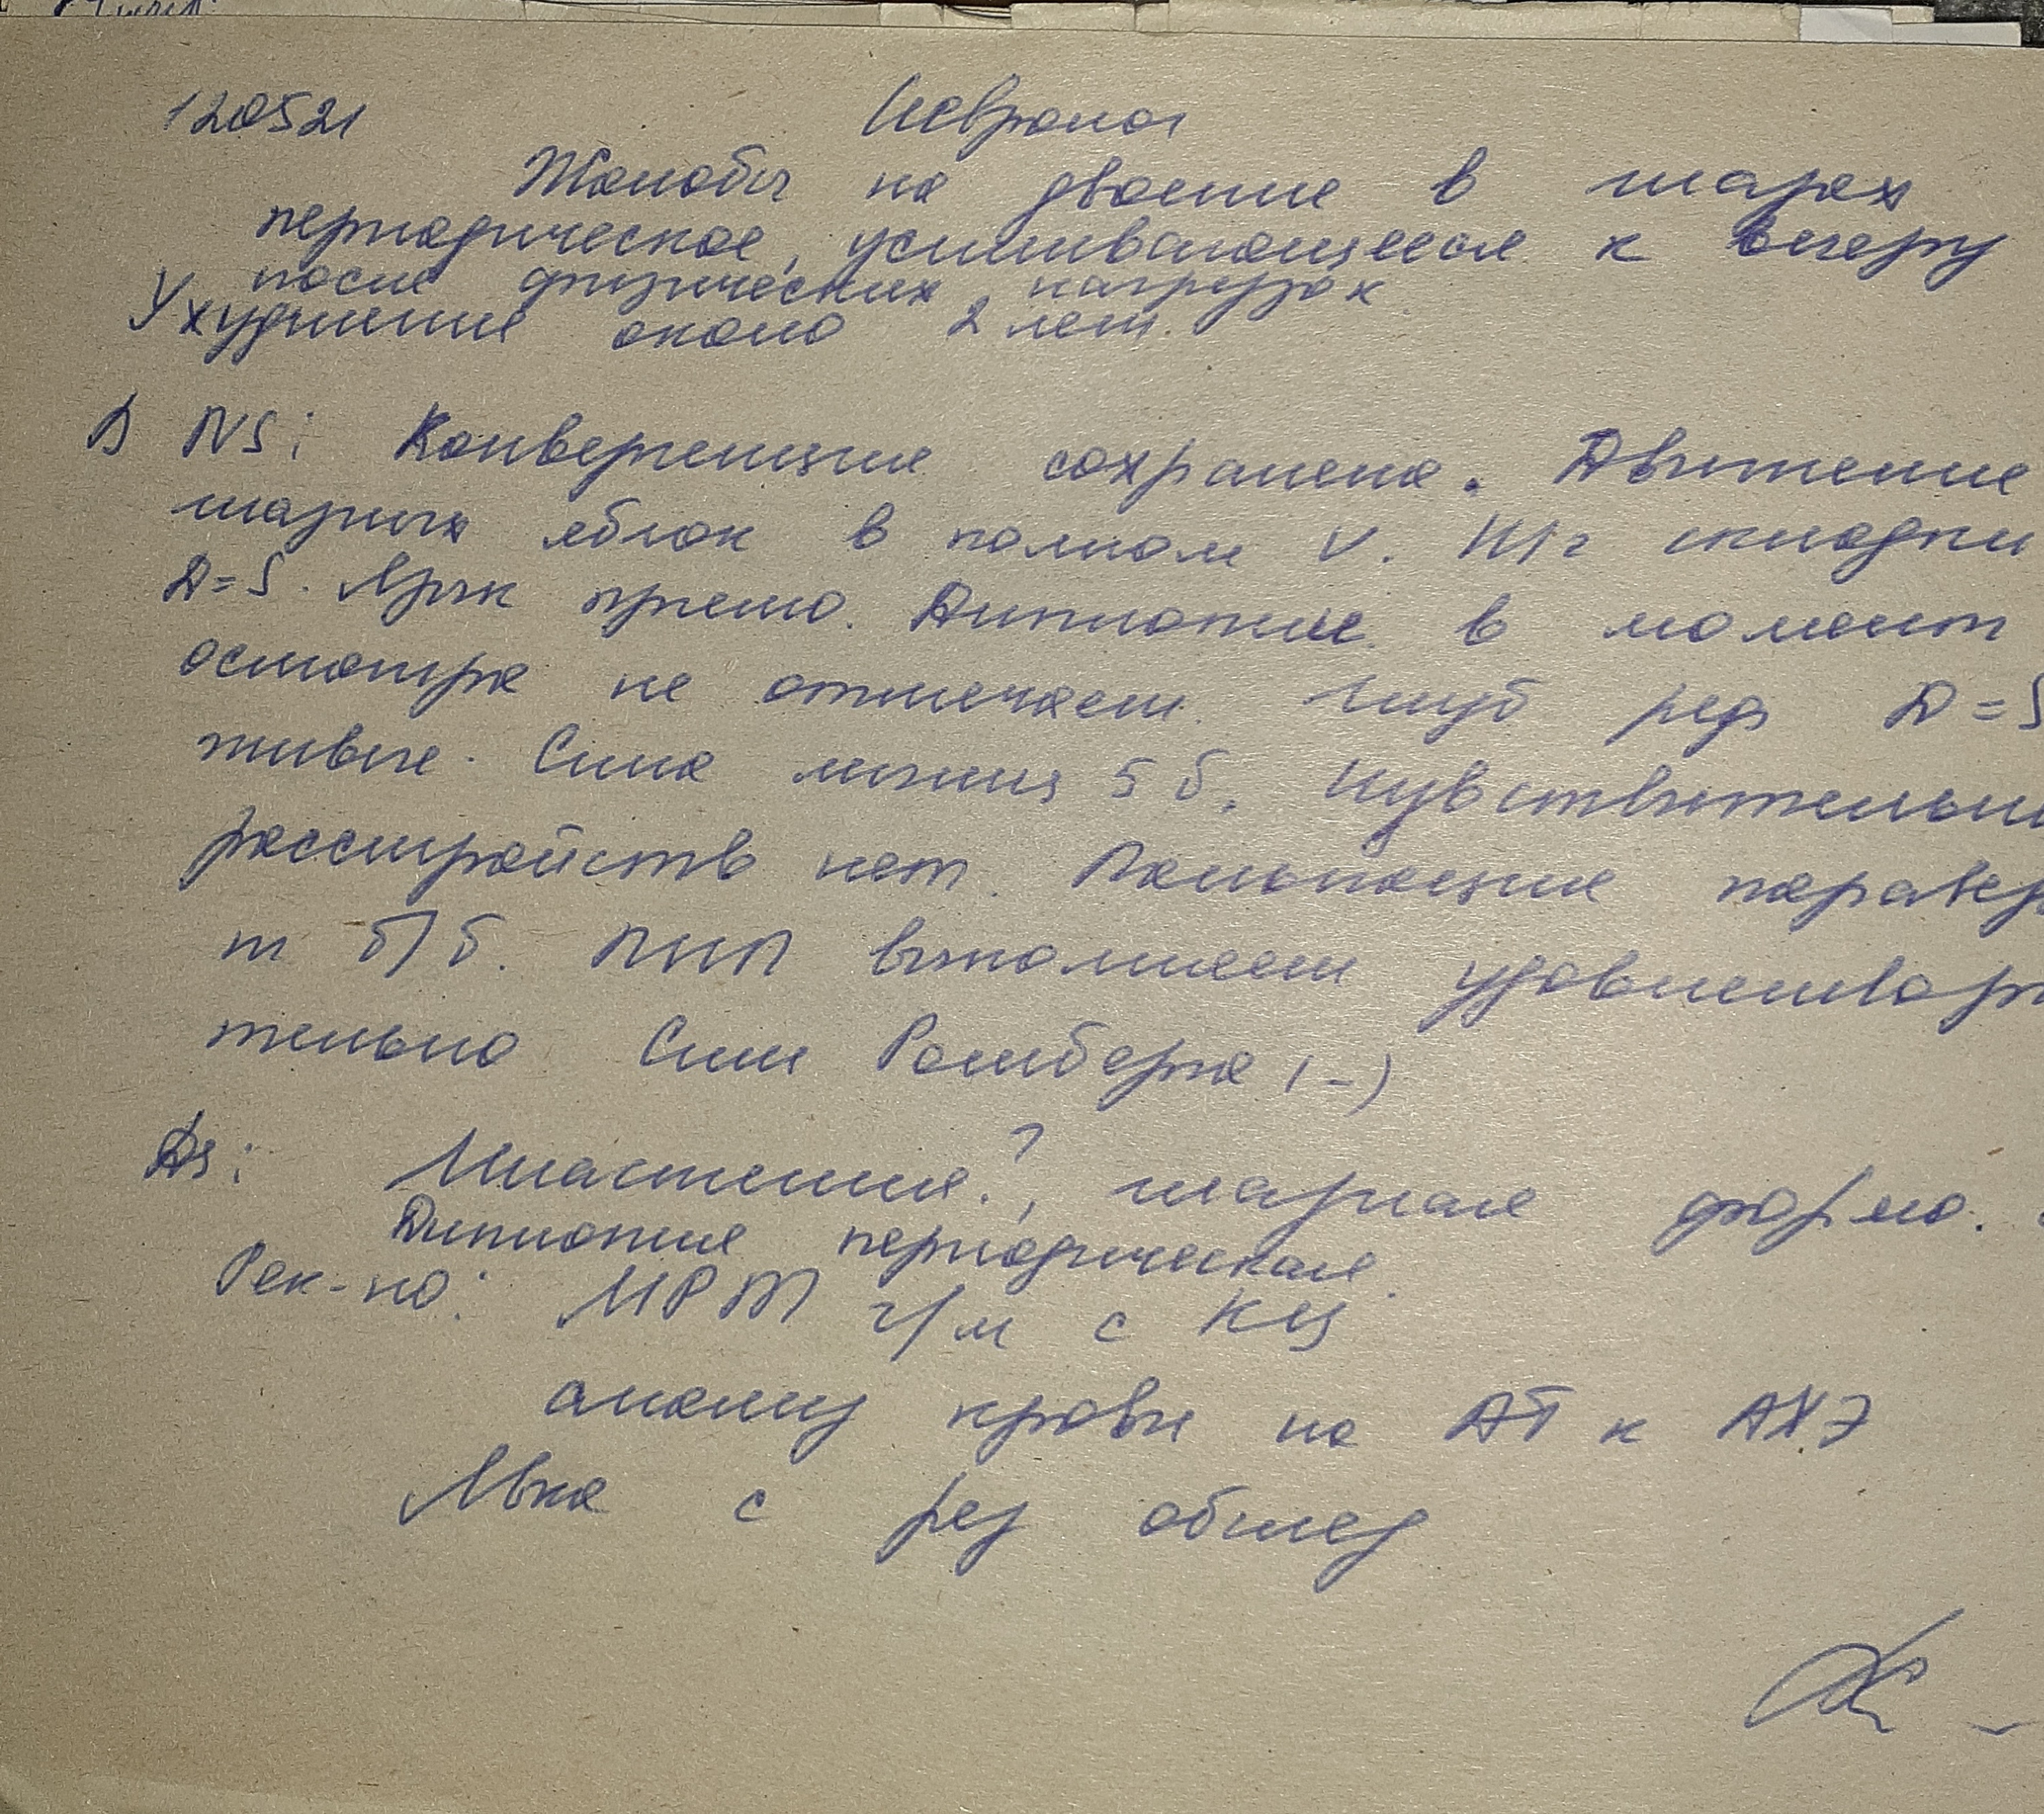 120521 Невролог
Жалобы на двоение в глазах
периодическое, усиливающееся к вечеру
после физических нагрузок
Ухудшение около 2 лет.
В NS: Конвергенция сохранена. Движение
глазных яблок в полном V. Н/г складки
D=S. Язык прямо. Диплопии в момент
осмотра не отмечает. Глуб реф D=S
живые. Сила мышц 5 б. Чувствительн
расстройств нет. Пальпация паравер
т б/б. ПНП выполняет удовлетвори
тельно Сим Ромберга (-)
Ds: Миастения?, глазная форма.
Диплопия периодическая
Рек-но: МРТ г/м с КУ
анализ крови на АТ к АХЭ
Явка с рез обслед